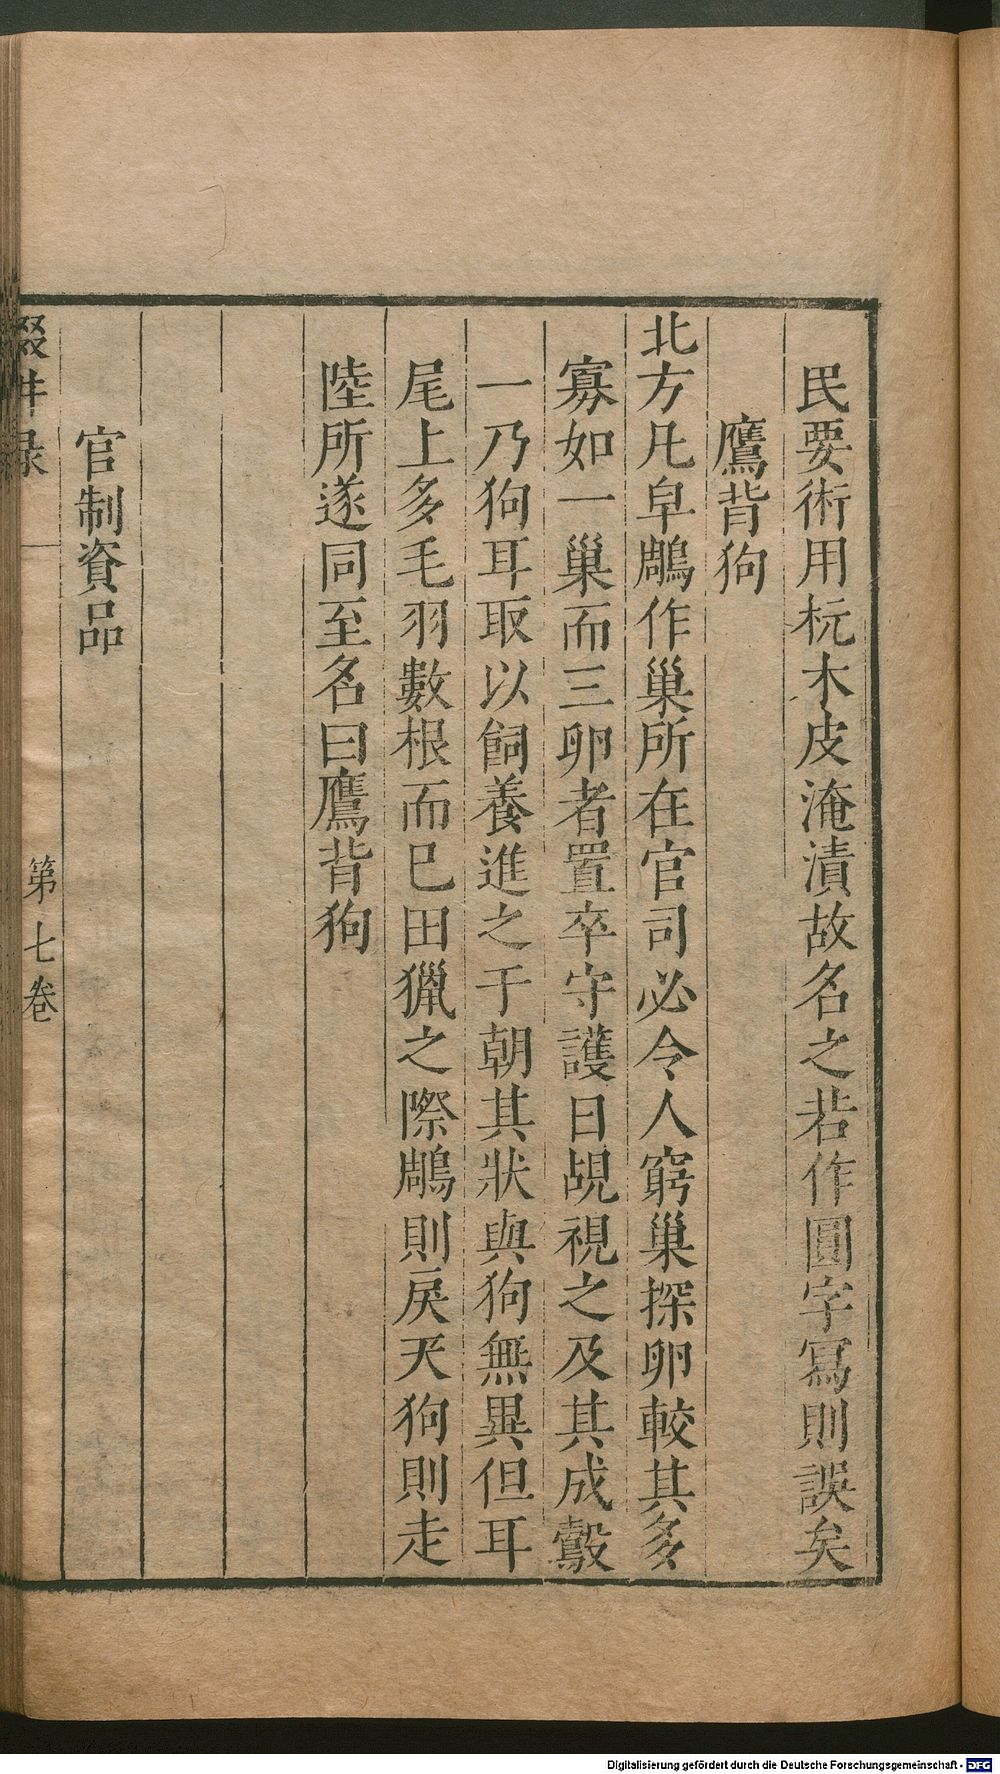 民要術用杬木皮淹漬故名之若作圓字寫則誤矣
鷹背狗
北方凡皁鵰作巢所在官司必令人窮巢探卵較其多
寡如一巢而三卵者置卒守護日覘視之及其成鷇
一乃狗耳取以飼養進之于朝其狀與狗無異但耳
尾上多毛羽數根而已田獵之際鵰則戾天狗則走
陸所遂同至名曰鷹背狗
官制資品
輟耕录
第七卷
Digitalisierung gefördert durch die Deutsche Forschungsgemeinschaft - DFG